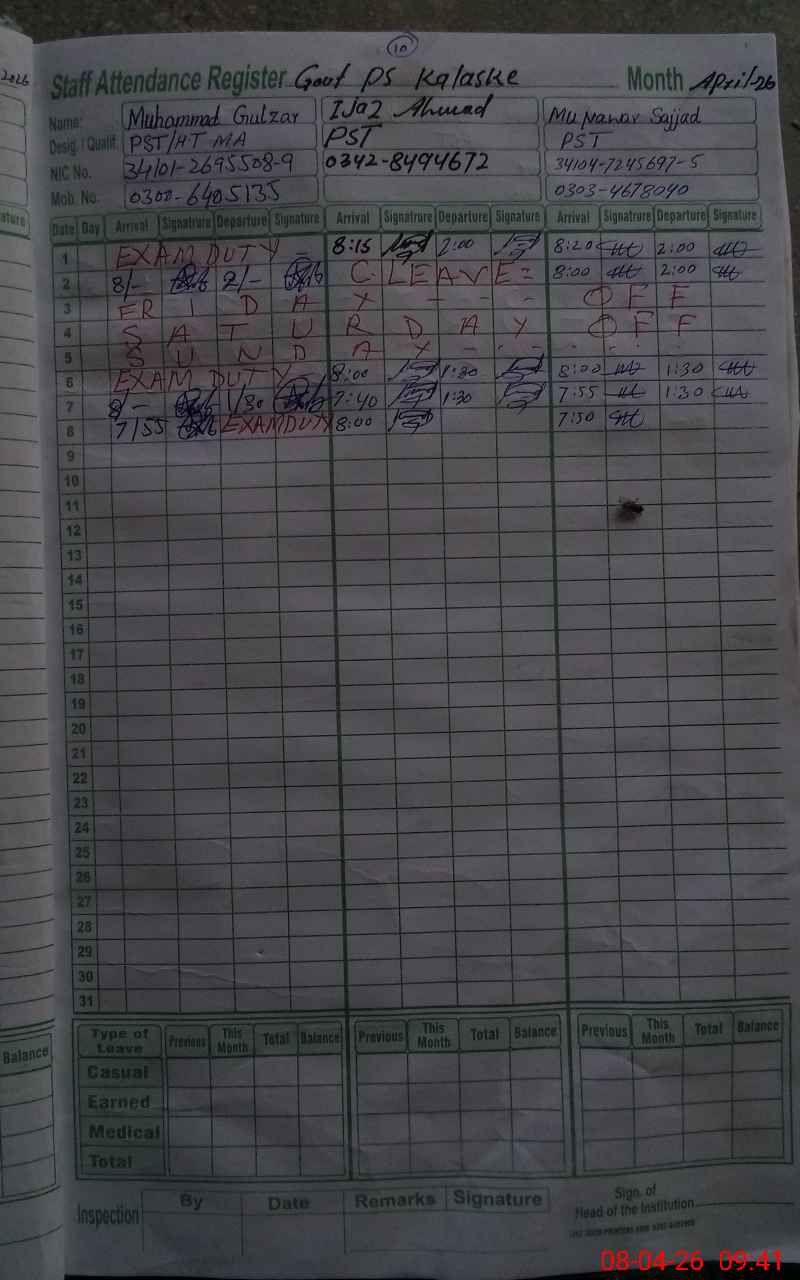 2026
10
Staff Attendance Register Govt PS Kalaske Month April-26
Name: Muhammad Gulzar IJaz Ahmad Munawar Sajjad
Desig. / Qualif. PST/HT MA PST PST
NIC No. 34101-2695508-9 0342-8494672 34104-7245697-5
Mob. No. 0300-6405135 0303-4678040
Date Day Arrival Signatrure Departure Signature Arrival Signatrure Departure Signature Arrival Signatrure Departure Signature
1 EXAM DUTY - 8:15 2:00 8:20 2:00
2 8/- 2/- C. LEAVE = 8:00 2:00
3 FR I D A Y - - - O F F
4 S A T U R D A Y O F F
5 S U N D A Y - - - - - -
6 EXAM DUTY - 8:00 1:30 8:00 1:30
7 8/- 1/30 7:40 1:30 7:55 1:30
8 7/55 EXAM DUTY 8:00 7:50
9
10
11
12
13
14
15
16
17
18
19
20
21
22
23
24
25
26
27
28
29
30
31
Type of Leave Previous This Month Total Balance Previous This Month Total Balance Previous This Month Total Balance
Balance
Casual
Earned
Medical
Total
Inspection By Date Remarks Signature
Sign. of
Head of the Institution
08-04-26 09:41